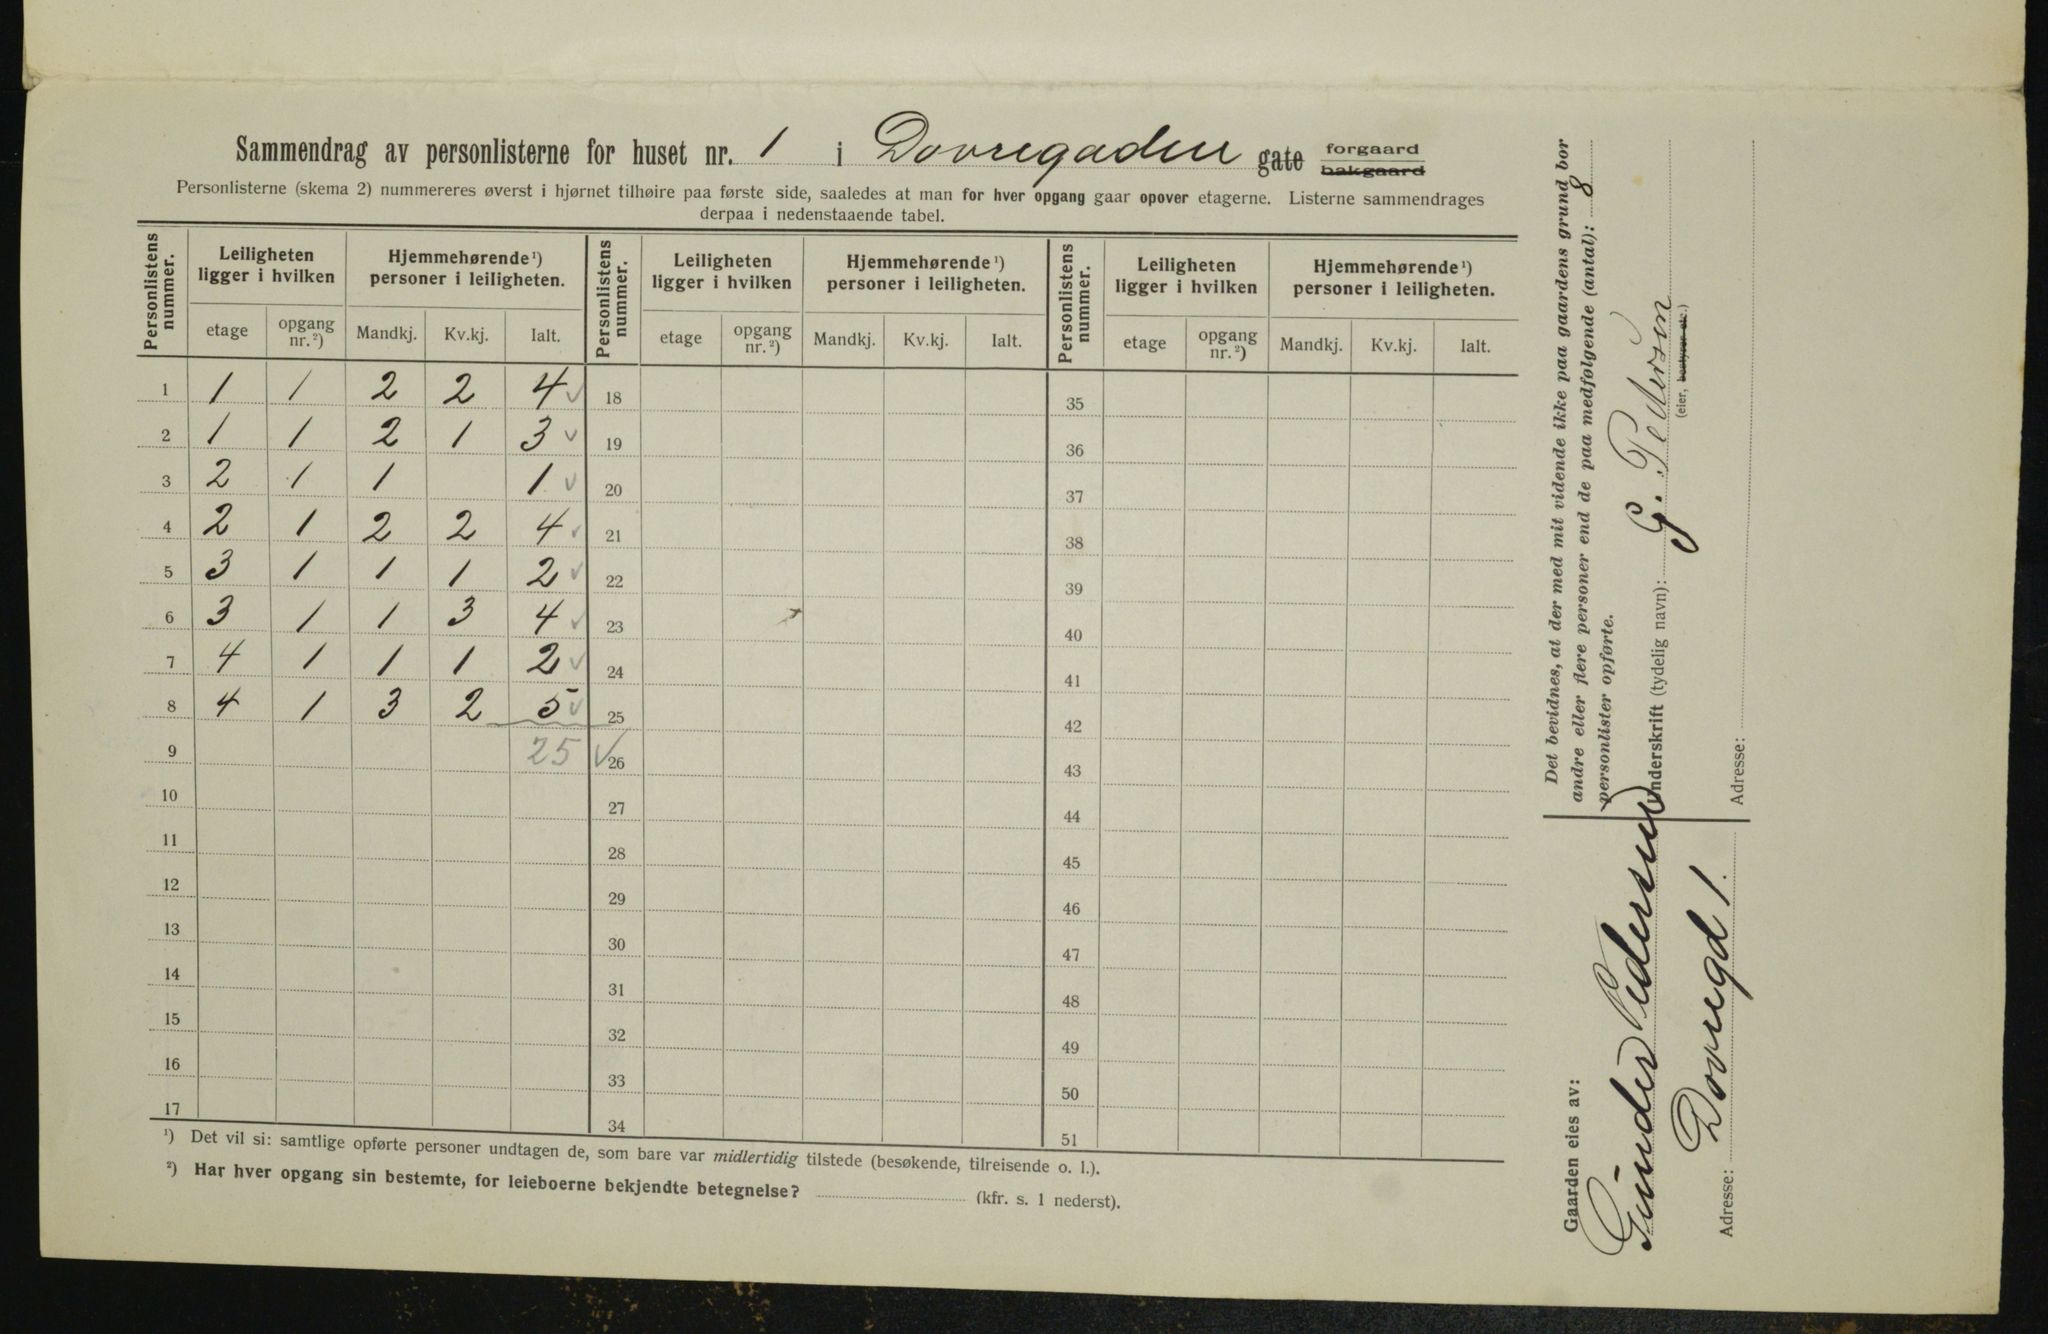 Sammendrag av personlisterne for huset nr. 1 i Dovregaden gate forgaard bakgaard
Personlisterne (skema 2) nummereres øverst i hjørnet tilhøire paa første side, saaledes at man for hver opgang gaar opover etagerne. Listerne sammendrages
derpaa i nedenstaaende tabel.
Personlistens nummer. Leiligheten ligger i hvilken Hjemmehørende ¹) personer i leiligheten. Personlistens nummer. Leiligheten ligger i hvilken Hjemmehørende ¹) personer i leiligheten. Personlistens nummer. Leiligheten ligger i hvilken Hjemmehørende ¹) personer i leiligheten.
etage opgang nr. ²) Mandkj. Kv.kj. Ialt. etage opgang nr. ²) Mandkj. Kv.kj. Ialt. etage opgang nr. ²) Mandkj. Kv.kj. Ialt.
1 1 1 2 2 4 ✓ 18 35
2 1 1 2 1 3 ✓ 19 36
3 2 1 1 1 ✓ 20 37
4 2 1 2 2 4 ✓ 21 38
5 3 1 1 1 2 ✓ 22 39
6 3 1 1 3 4 ✓ 23 40
7 4 1 1 1 2 ✓ 24 41
8 4 1 3 2 5 ✓ 25 42
9 25 ✓ 26 43
10 27 44
11 28 45
12 29 46
13 30 47
14 31 48
15 32 49
16 33 50
17 34 51
¹) Det vil si: samtlige opførte personer undtagen de, som bare var midlertidig tilstede (besøkende, tilreisende o. l.).
²) Har hver opgang sin bestemte, for leieboerne bekjendte betegnelse? (kfr. s. 1 nederst).
Det bevidnes, at der med mit vidende ikke paa gaardens grund bor
andre eller flere personer end de paa medfølgende (antal): 8
personlister opførte.
Underskrift (tydelig navn): G. Pedersen
(eier, bestyrer etc.)
Adresse:
Gaarden eies av:
Gunder Pedersen
Adresse: Dovregd 1.